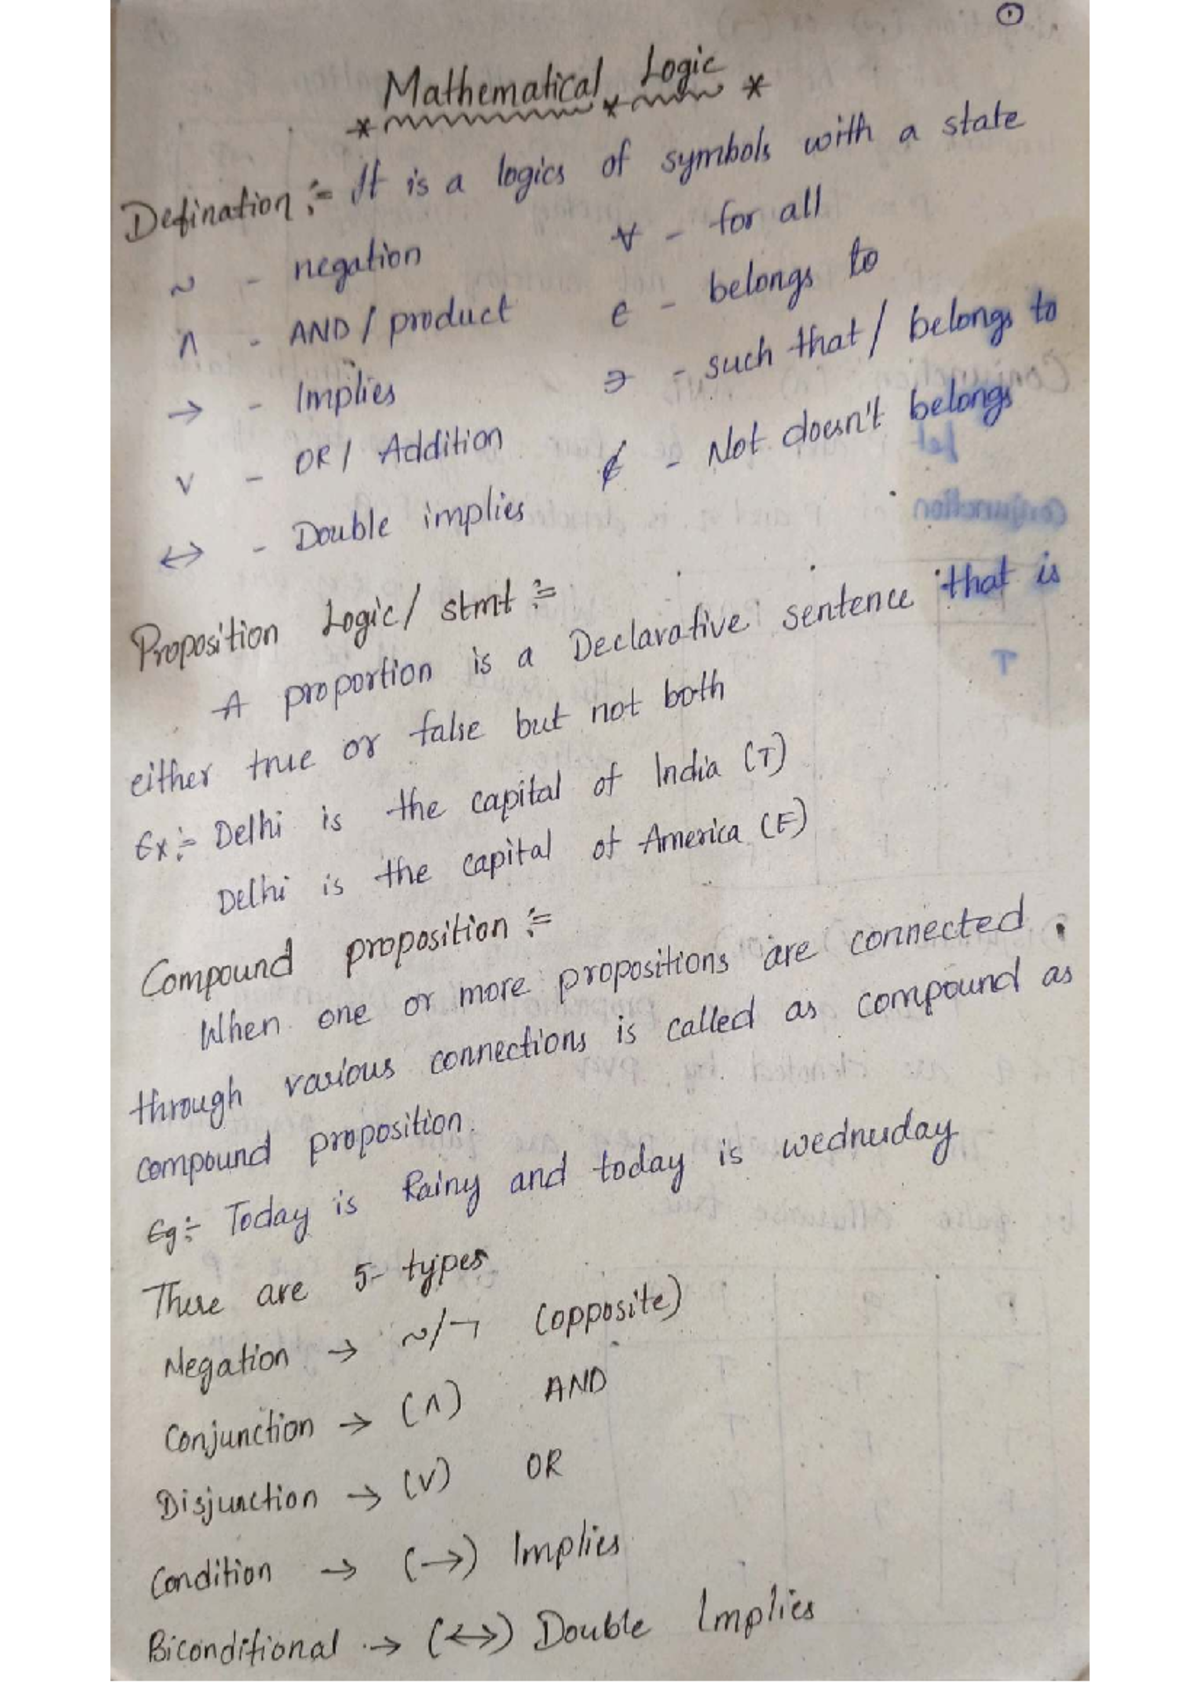 1
Mathematical Logic
Defination :- It is a logics of symbols with a state
~ - negation
∀ - for all
∧ - AND / product
∈ - belongs to
→ - Implies
∋ - such that / belongs to
∨ - OR / Addition
∉ - Not doesn't belongs
↔ - Double implies
Proposition Logic / stmt :-
A proportion is a Declarative sentence that is
either true or false but not both
Ex :- Delhi is the capital of India (T)
Delhi is the capital of America (F)
Compound proposition :-
When one or more propositions are connected
through various connections is called as compound as
compound proposition.
Eg :- Today is Rainy and today is wednesday
There are 5- types
Negation → ~/¬ (opposite)
Conjunction → (∧) AND
Disjunction → (∨) OR
Condition → (→) Implies
Biconditional → (↔) Double Implies